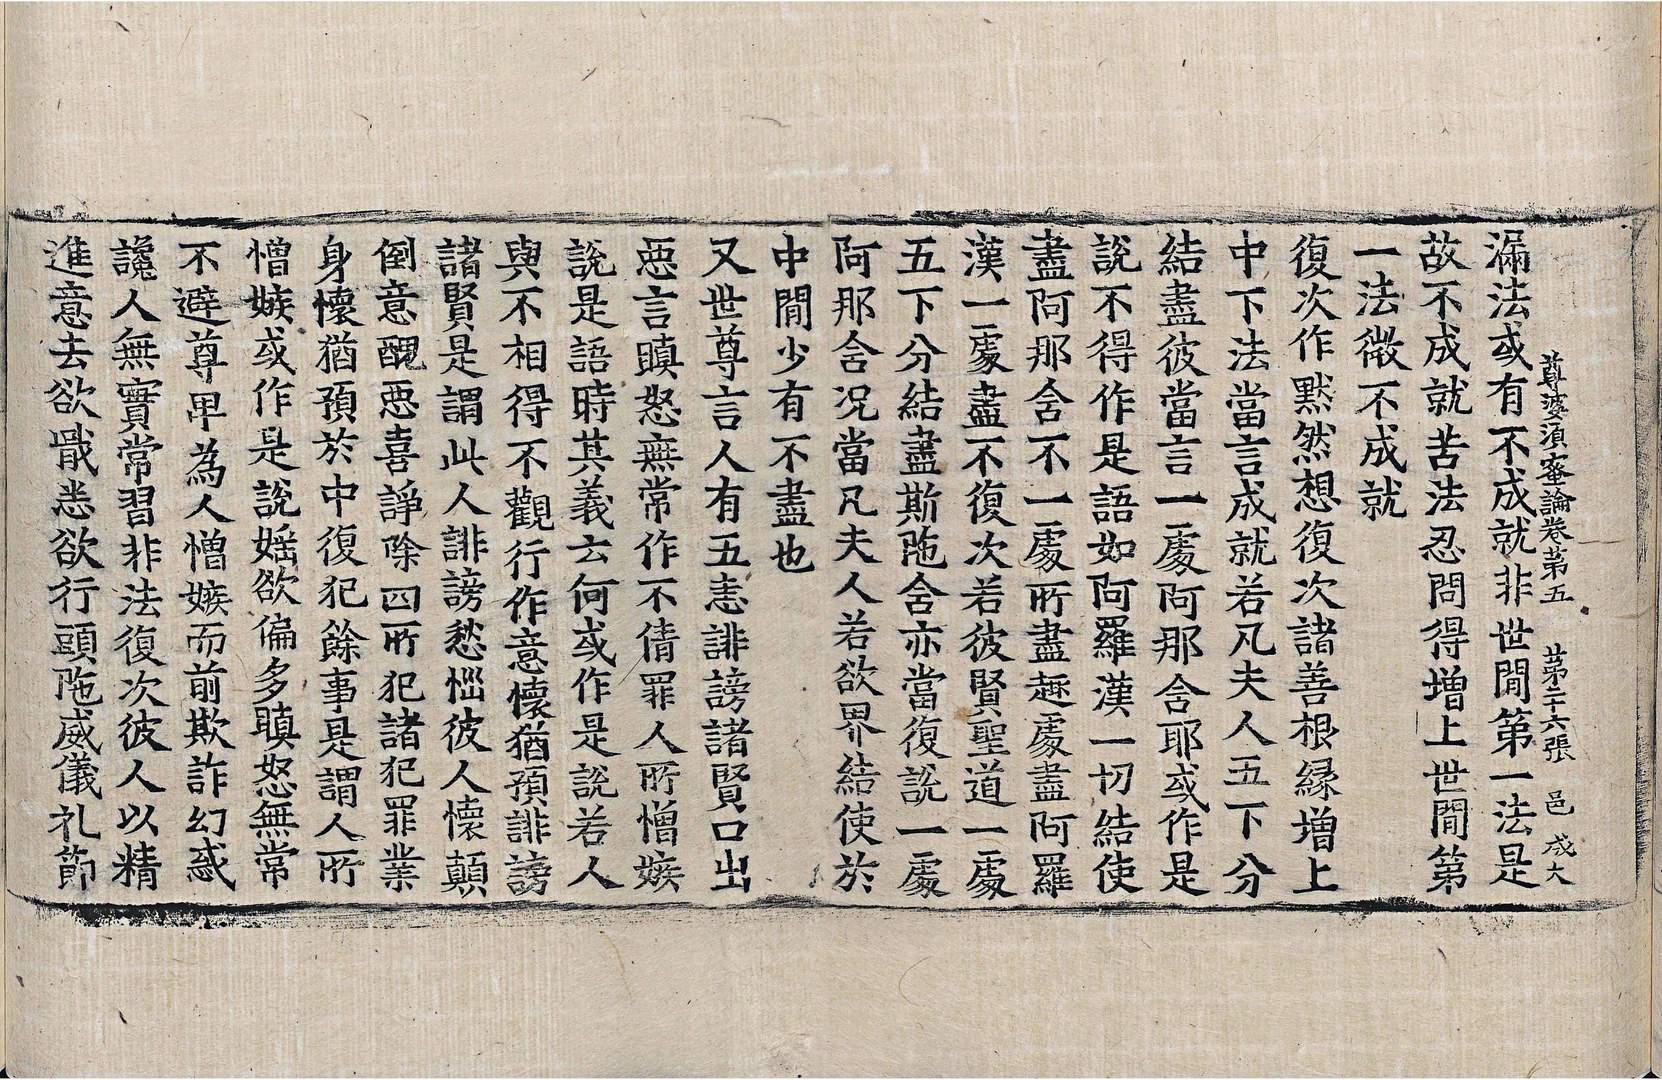 尊婆須蜜論卷第五 第二十六張 邑 成大
漏法或有不成就非世間第一法是
故不成就苦法忍問得增上世間第
一法微不成就
復次作默然想復次諸善根緣增上
中下法當言成就若凡夫人五下分
結盡彼當言一處阿那含耶或作是
說不得作是語如阿羅漢一切結使
盡阿那含不一處所盡趣處盡阿羅
漢一處盡不復次若彼賢聖道一處
五下分結盡斯陁含亦當復說一處
阿那含況當凡夫人若欲界結使於
中間少有不盡也
又世尊言人有五恚誹謗諸賢口出
惡言瞋怒無常作不倩罪人所憎嫉
說是語時其義云何或作是說若人
與不相得不觀行作意懷猶預誹謗
諸賢是謂此人誹謗愁惱彼人懷顛
倒意醜惡喜諍除四所犯諸犯罪業
身懷猶預於中復犯餘事是謂人所
憎嫉或作是說婬欲偏多瞋怒無常
不避尊卑為人憎嫉而前欺詐幻惑
讒人無實常習非法復次彼人以精
進意去欲戢恚欲行頭陁威儀礼節